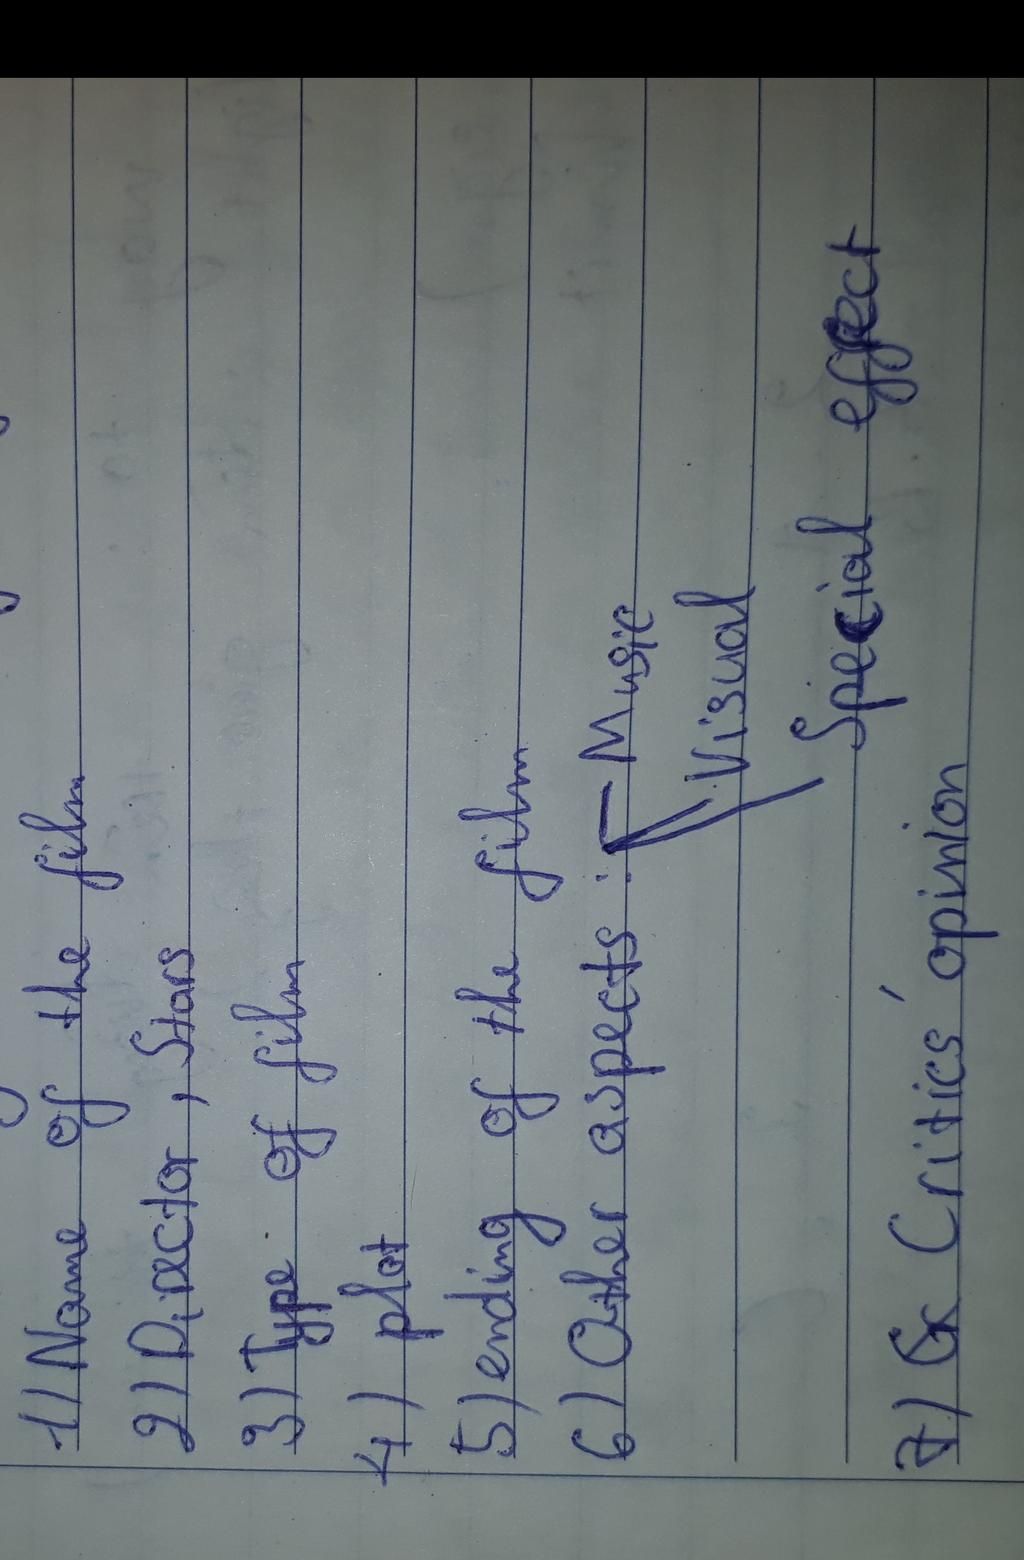 1) Name of the film
2) Director, Stars
3) Type of film
4) plot
5) ending of the film
6) Other aspects : Music
Visual
Special effect
7) Critics' opinion